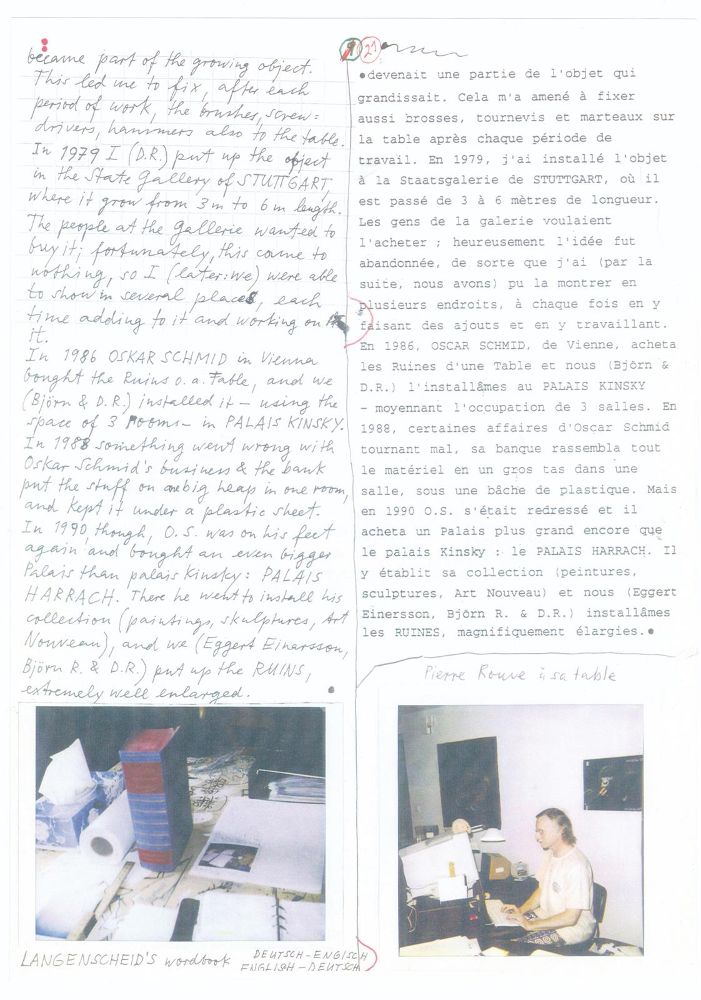 became part of the growing object.
This led me to fix, after each
period of work, the brushes, screw=
drivers, hammers also to the table.
In 1979 I (D.R.) put up the object
in the State Gallery of STUTTGART,
where it grew from 3m to 6m length.
The people at the Gallerie wanted to
buy it; fortunately, this came to
nothing, so I (later: we) were able
to show in several places, each
time adding to it and working on
it.
In 1986 OSKAR SCHMID in Vienna
bought the Ruins o. a. Table, and we
(Björn & D.R.) installed it – using the
space of 3 rooms – in PALAIS KINSKY.
In 1988 something went wrong with
Oskar Schmid's business & the bank
put the stuff on one big heap in one room,
and kept it under a plastic sheet.
In 1990, though, O.S. was on his feet
again and bought an even bigger
Palais than palais Kinsky: PALAIS
HARRACH. There he went to install his
collection (paintings, skulptures, Art
Nouveau), and we (Eggert Einarsson,
Björn R. & D.R.) put up the RUINS,
extremely well enlarged.
21
devenait une partie de l'objet qui
grandissait. Cela m'a amené à fixer
aussi brosses, tournevis et marteaux sur
la table après chaque période de
travail. En 1979, j'ai installé l'objet
à la Staatsgalerie de STUTTGART, où il
est passé de 3 à 6 mètres de longueur.
Les gens de la galerie voulaient
l'acheter ; heureusement l'idée fut
abandonnée, de sorte que j'ai (par la
suite, nous avons) pu la montrer en
plusieurs endroits, à chaque fois en y
faisant des ajouts et en y travaillant.
En 1986, OSCAR SCHMID, de Vienne, acheta
les Ruines d'une Table et nous (Björn &
D.R.) l'installâmes au PALAIS KINSKY
– moyennant l'occupation de 3 salles. En
1988, certaines affaires d'Oscar Schmid
tournant mal, sa banque rassembla tout
le matériel en un gros tas dans une
salle, sous une bâche de plastique. Mais
en 1990 O.S. s'était redressé et il
acheta un Palais plus grand encore que
le palais Kinsky : le PALAIS HARRACH. Il
y établit sa collection (peintures,
sculptures, Art Nouveau) et nous (Eggert
Einersson, Björn R. & D.R.) installâmes
les RUINES, magnifiquement élargies.
Pierre Rouve à sa table
LANGENSCHEID'S wordbook DEUTSCH-ENGISCH
ENGLISH-DEUTSCH